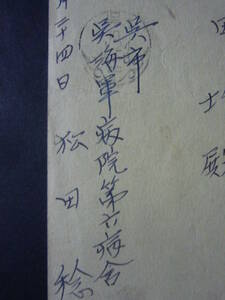 殿
呉市
呉海軍病院第六病舎
月二十四日 松田